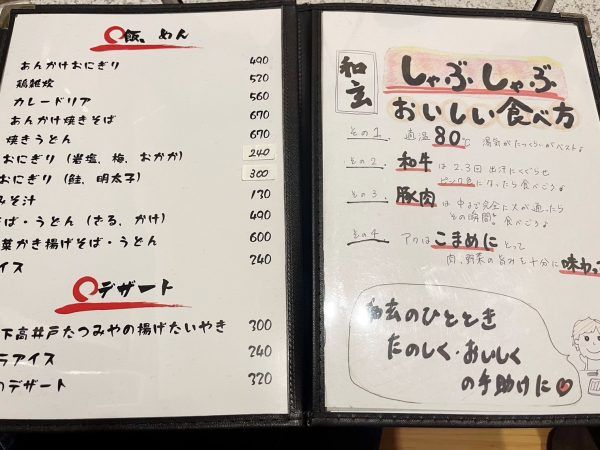 飯、めん
あんかけおにぎり 490
鶏雑炊 520
カレードリア 560
あんかけ焼きそば 670
焼きうどん 670
おにぎり (岩塩、梅、おかか) 240
おにぎり (鮭、明太子) 300
みそ汁 130
ば・うどん (ざる、かけ) 490
菜かき揚げそば・うどん 600
イス 240
デザート
下高井戸たつみやの揚げたいやき 300
アイス 240
のデザート 320
和玄
しゃぶしゃぶ
おいしい食べ方
その1 適温80℃ 湯気がたつくらいがベスト♪
その2 和牛は2.3回出汁にくぐらせ
ピンク色になったら食べごろ♪
その3 豚肉は中まで完全に火が通ったら
その瞬間。食べごろ♪
その4 アクはこまめにとって
肉、野菜の旨みを十分に味わっ
和玄のひととき
たのしく・おいしく
の手助けに